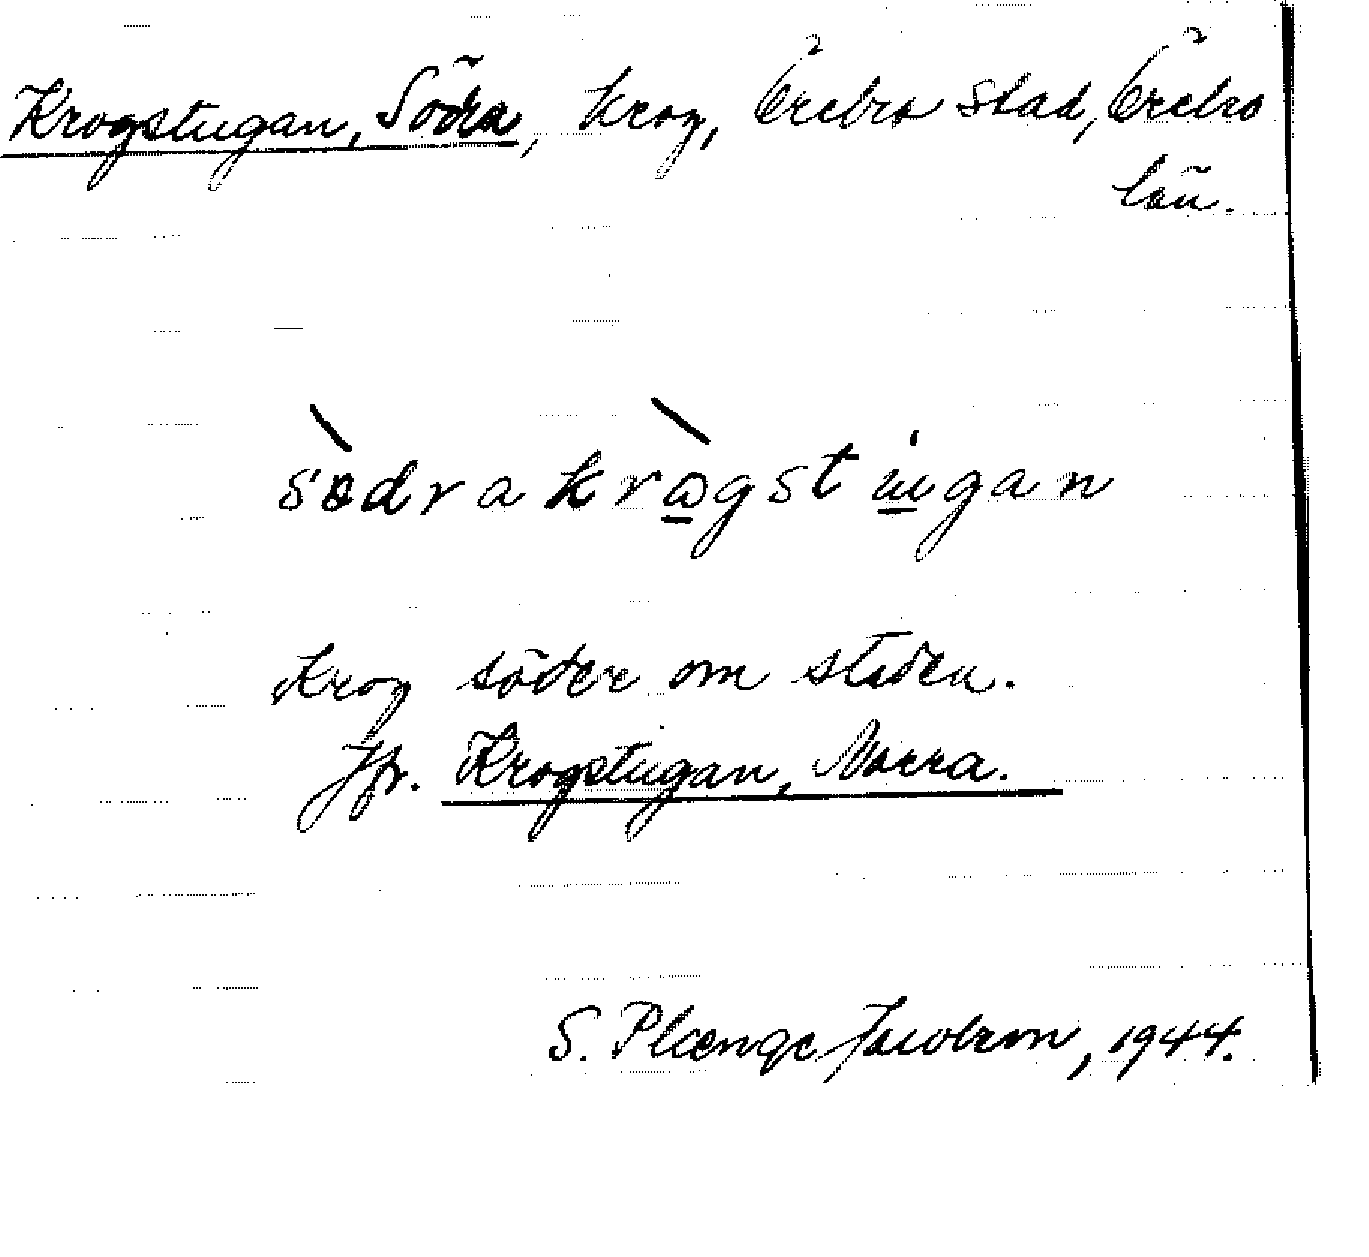 Krogstugan, Södra, krog, Örebro stad, Örebro
län.
södrakrogstugan
Krog söder om staden.
Jfr. Krogstugan, Norra.
S. Plænge Jacobson, 1944.